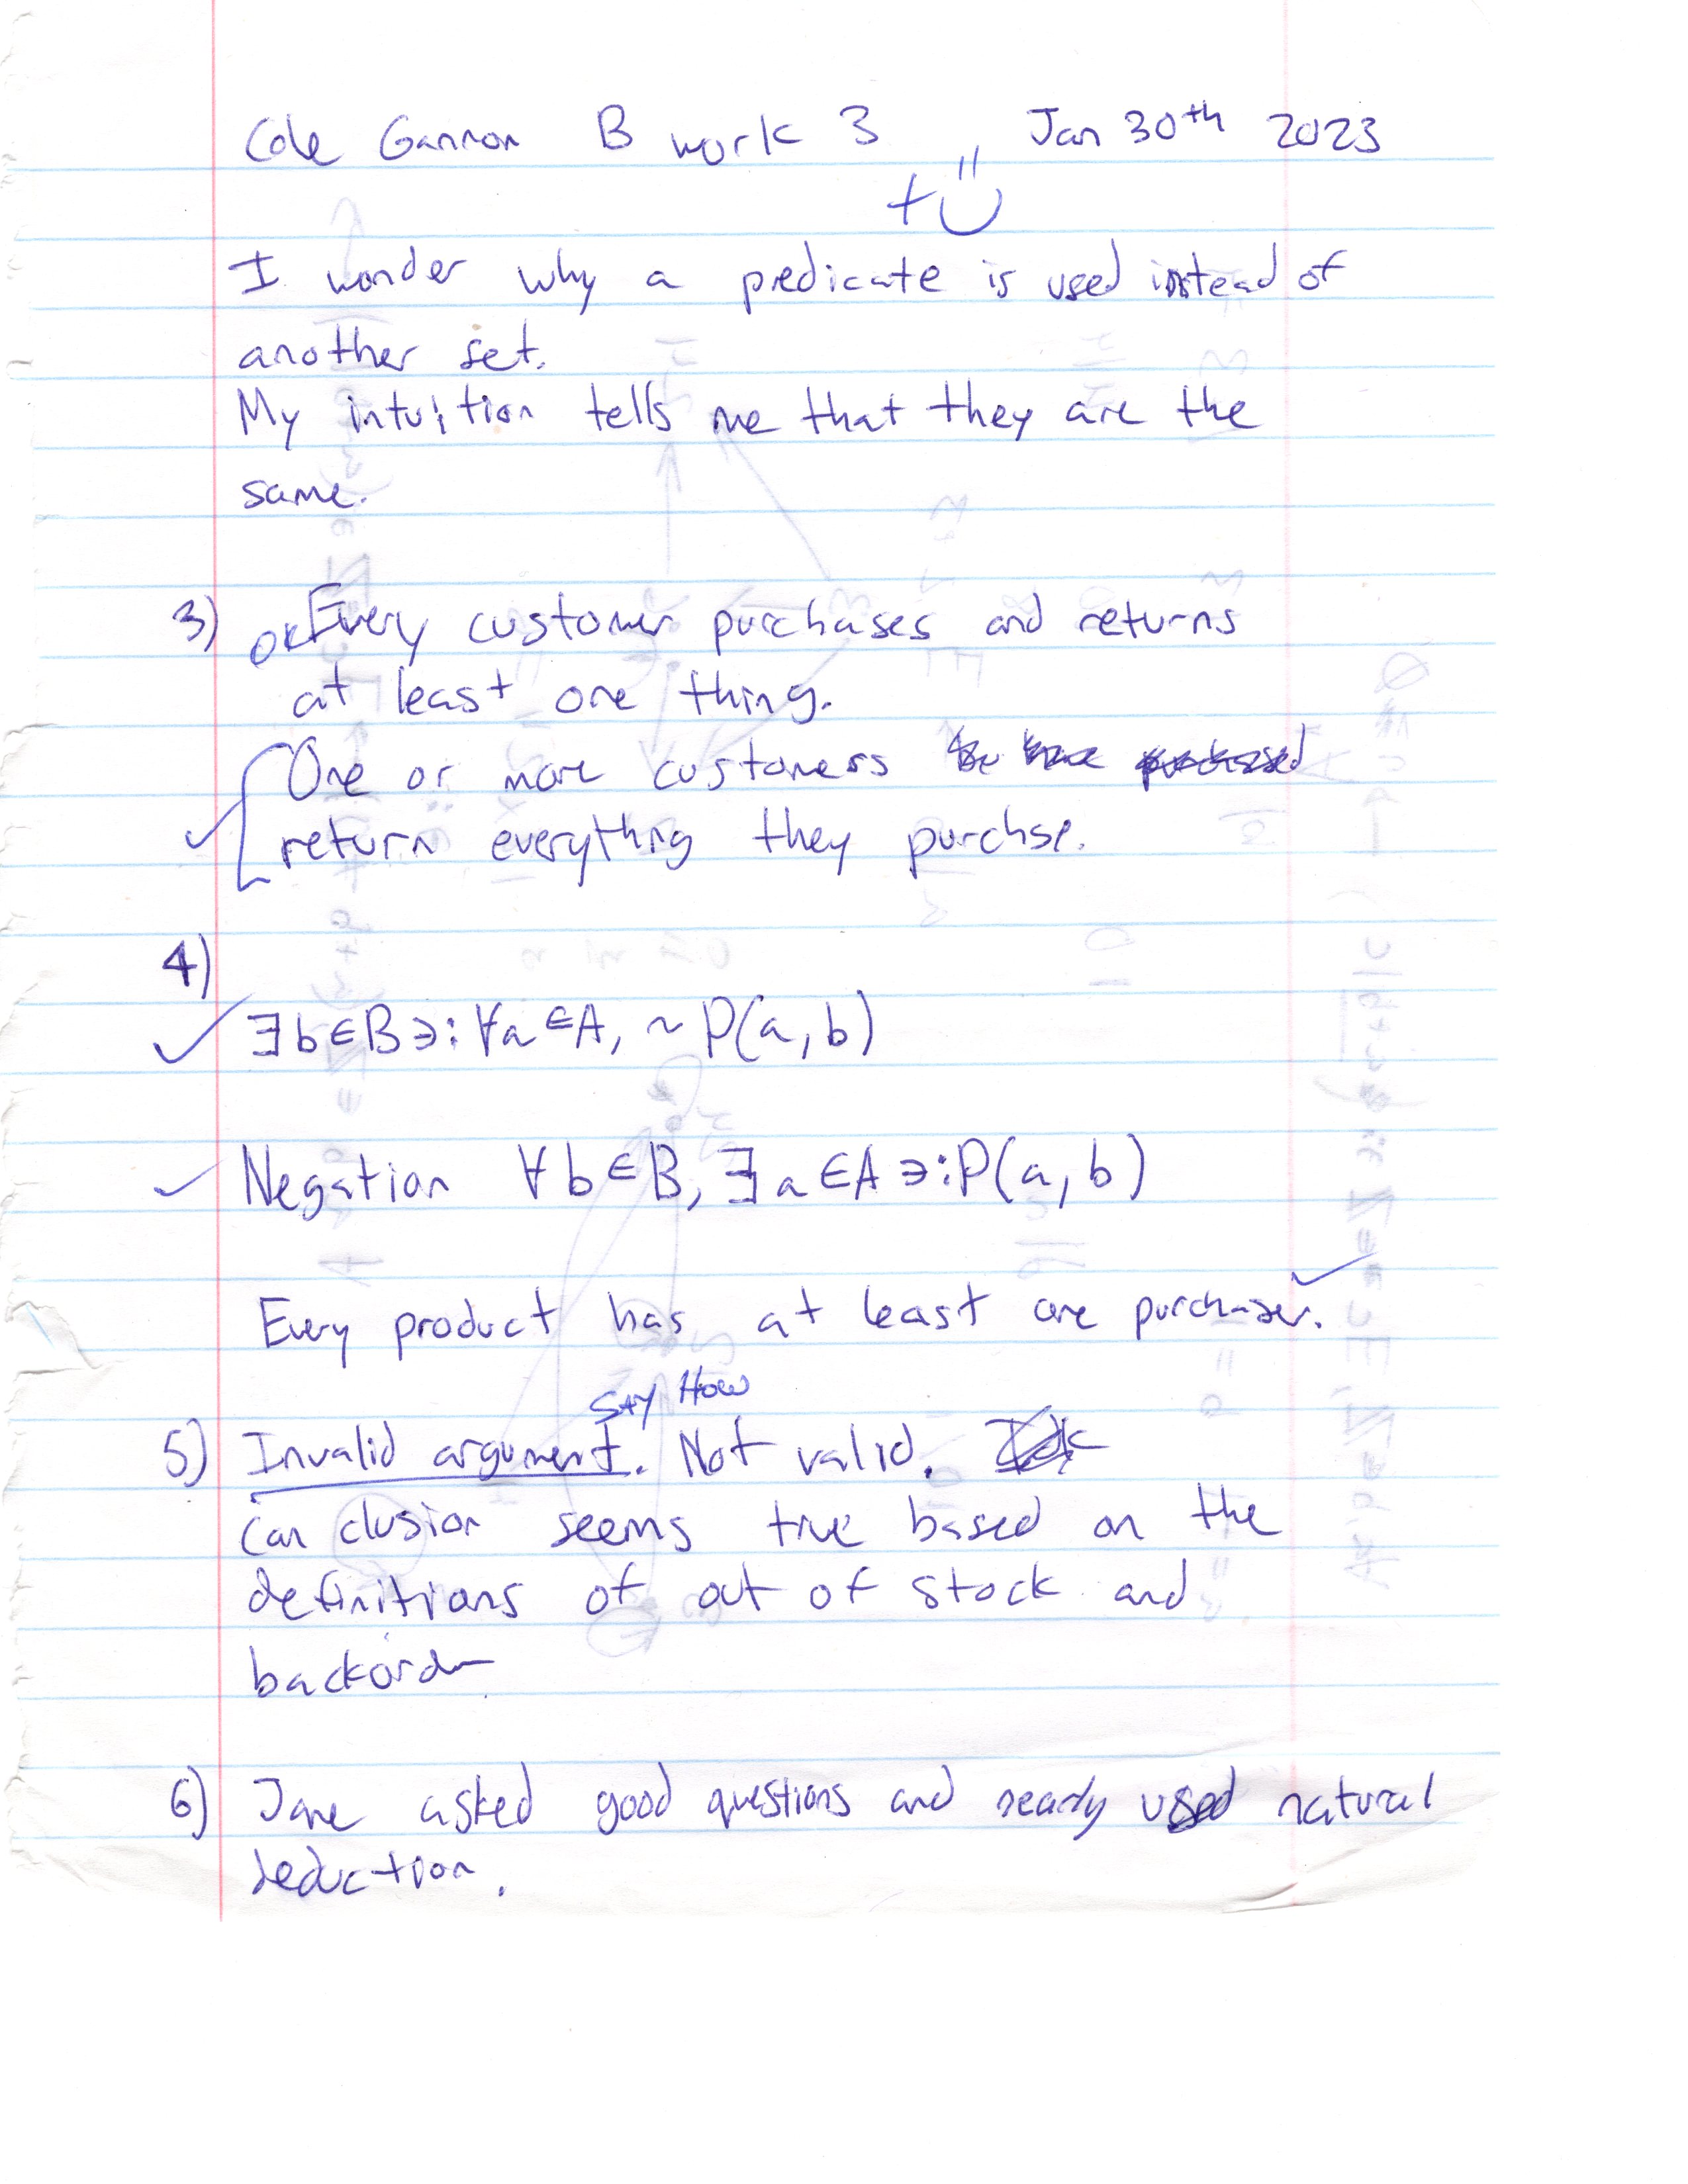 Cole Gannon B work 3 Jan 30th 2023
+
I wonder why a predicate is used instead of
another set.
My intuition tells me that they are the
same.
3) OK Every customer purchases and returns
at least one thing.
One or more customers
return everything they purchse.
4)
∃b∈B∋: ∀a∈A, ~P(a,b)
Negation ∀b∈B, ∃a∈A∋:P(a,b)
Every product has at least one purchaser.
SAY HOW
5) Invalid argument. Not valid.
Conclusion seems true based on the
definitions of out of stock and
backorder
6) Jane asked good questions and nearly used natural
deduction.